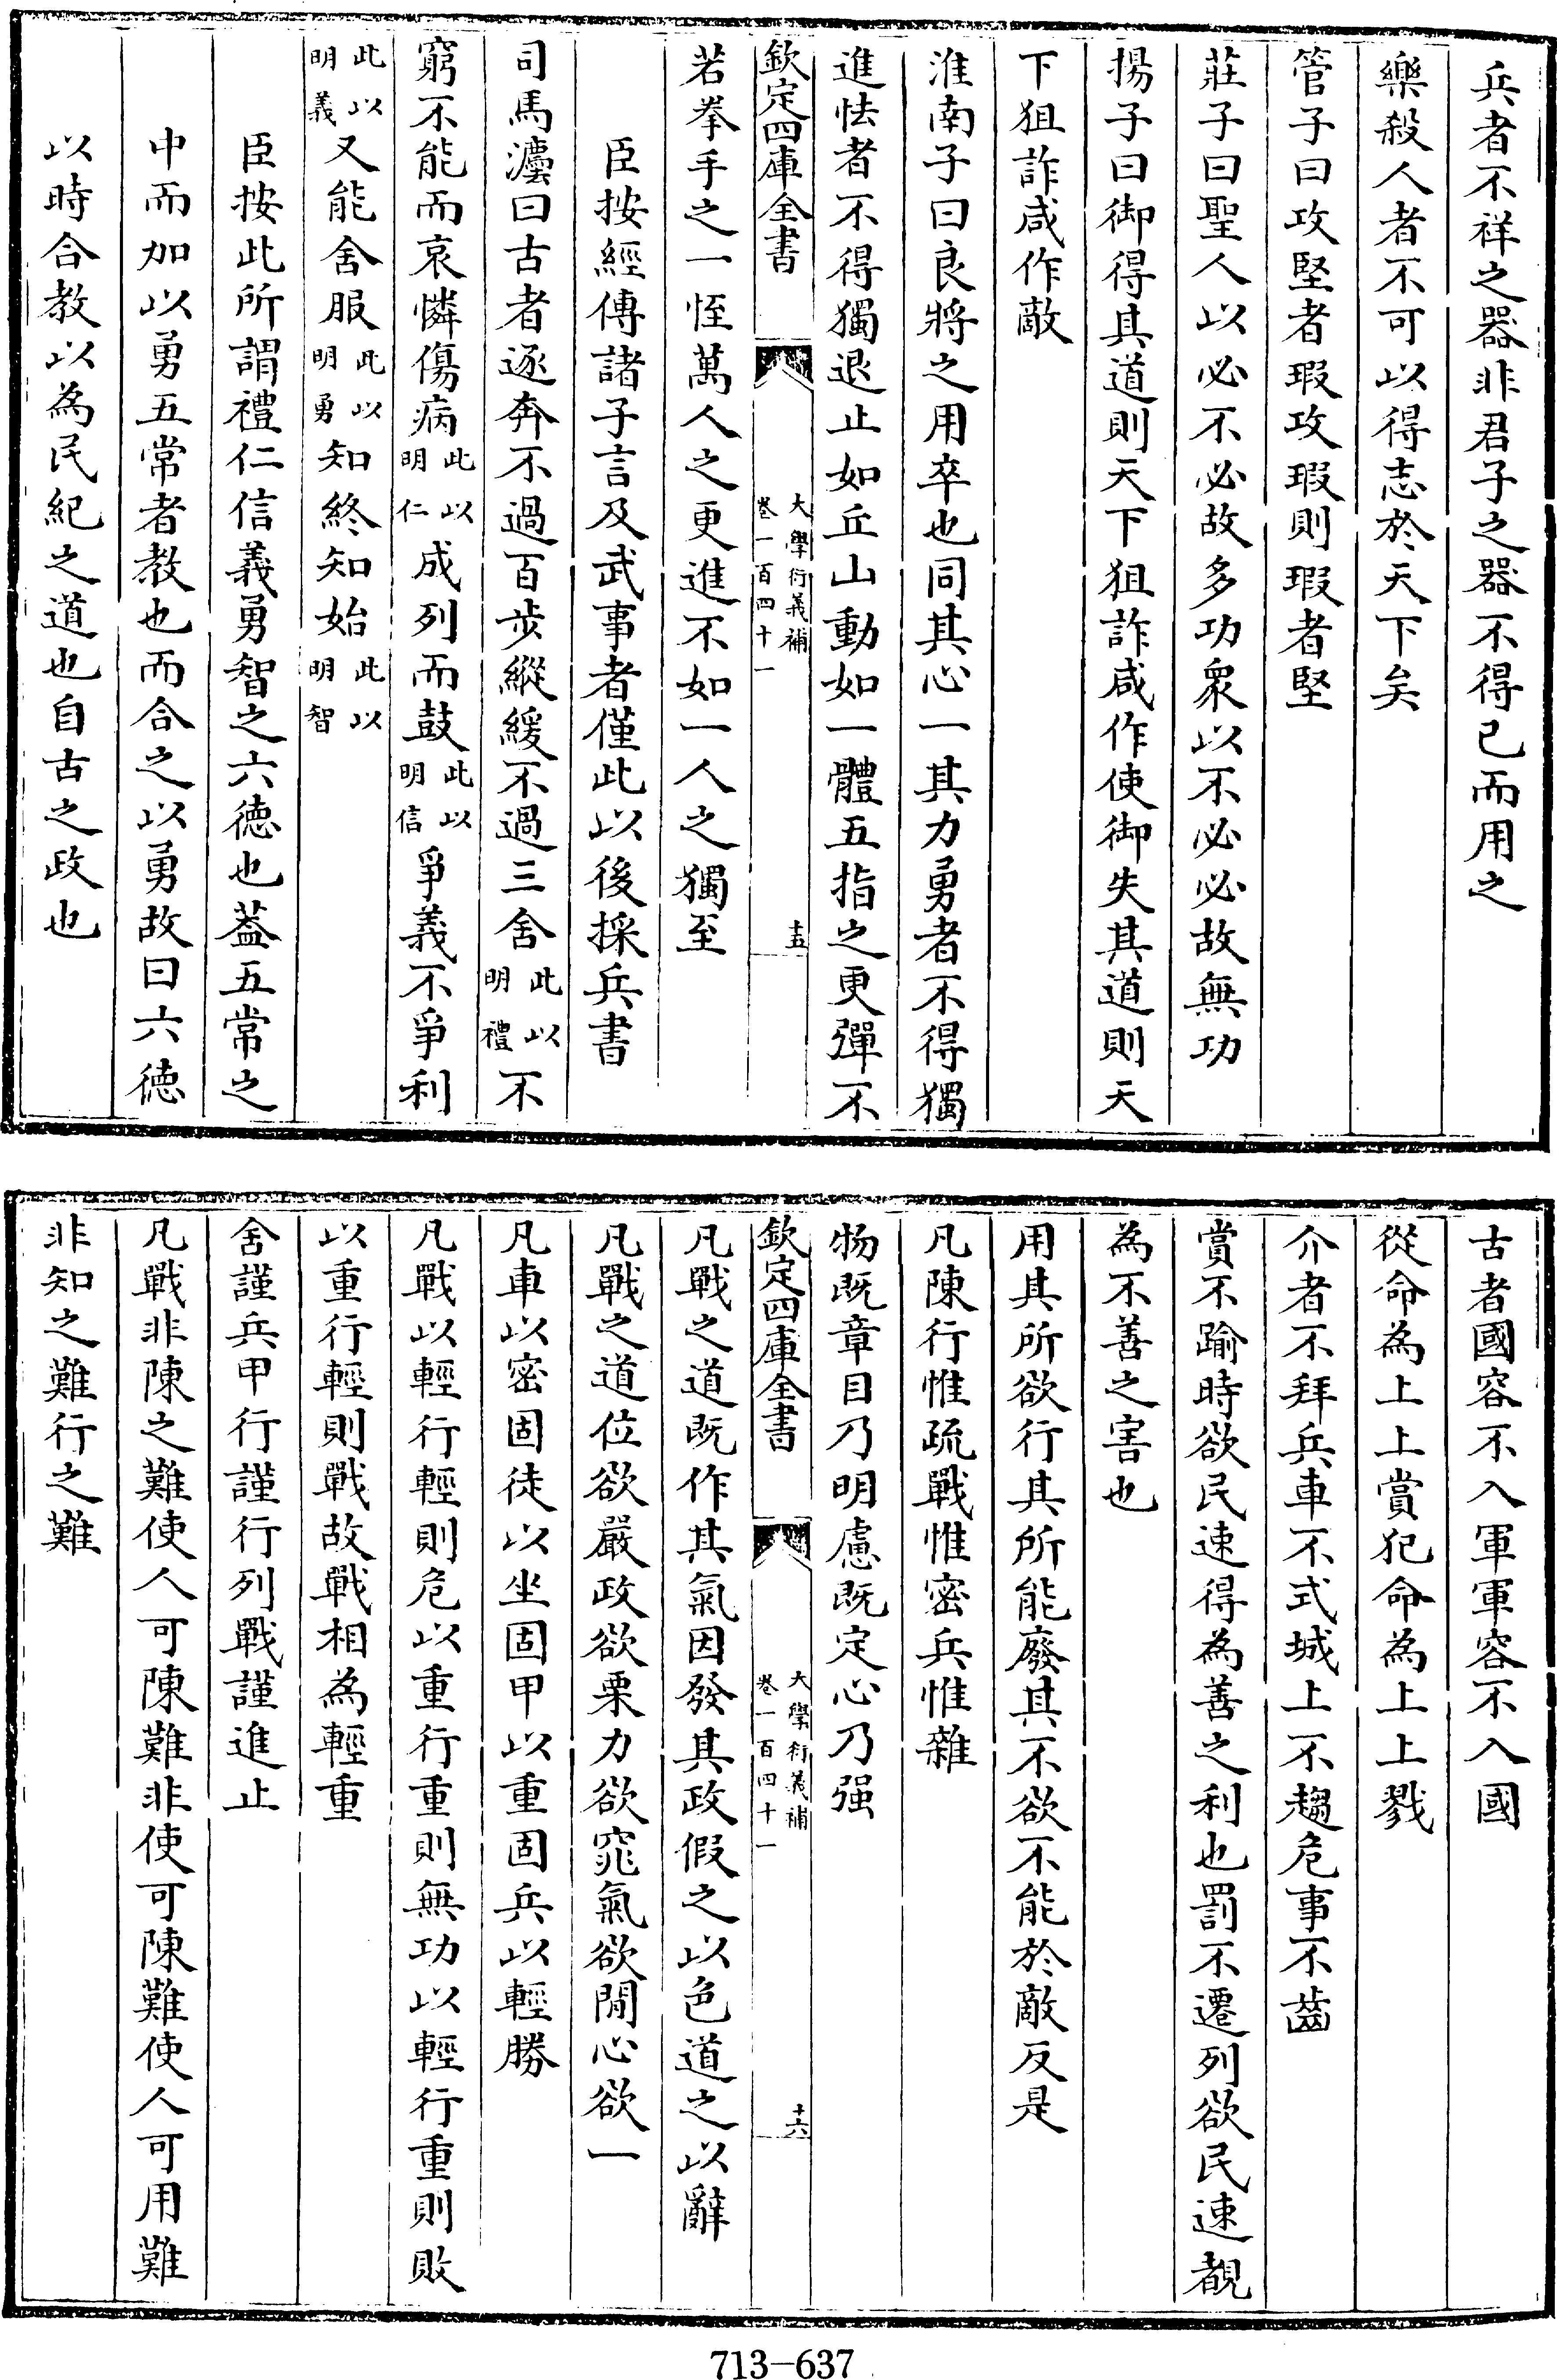 兵者不祥之器非君子之器不得已而用之
樂殺人者不可以得志於天下矣
管子曰攻堅者瑕攻瑕則瑕者堅
莊子曰聖人以必不必故多功衆以不必必故無功
揚子曰御得其道則天下狙詐咸作使御失其道則天
下狙詐咸作敵
淮南子曰良將之用卒也同其心一其力勇者不得獨
進怯者不得獨退止如丘山動如一體五指之更彈不
欽定四庫全書
大學衍義補
卷一百四十一
十五
若拳手之一恎萬人之更進不如一人之獨至
臣按經傳諸子言及武事者僅此以後採兵書
司馬灋曰古者逐奔不過百步縱緩不過三舍此以明禮不
窮不能而哀憐傷病此以明仁成列而鼓此以明信爭義不爭利
此以明義又能舍服此以明勇知終知始此以明智
臣按此所謂禮仁信義勇智之六德也葢五常之
中而加以勇五常者教也而合之以勇故曰六徳
以時合教以為民紀之道也自古之政也
古者國容不入軍軍容不入國
從命為上上賞犯命為上上戮
介者不拜兵車不式城上不趨危事不齒
賞不踰時欲民速得為善之利也罰不遷列欲民速覩
為不善之害也
用其所欲行其所能廢其不欲不能於敵反是
凡陳行惟疏戰惟密兵惟雜
物既章目乃明慮既定心乃强
欽定四庫全書
大學衍義補
卷一百四十一
十六
凡戰之道既作其氣因發其政假之以色道之以辭
凡戰之道位欲嚴政欲栗力欲窕氣欲閒心欲一
凡車以密固徒以坐固甲以重固兵以輕勝
凡戰以輕行輕則危以重行重則無功以輕行重則敗
以重行輕則戰故戰相為輕重
舍謹兵甲行謹行列戰謹進止
凡戰非陳之難使人可陳難非使可陳難使人可用難
非知之難行之難
713-637